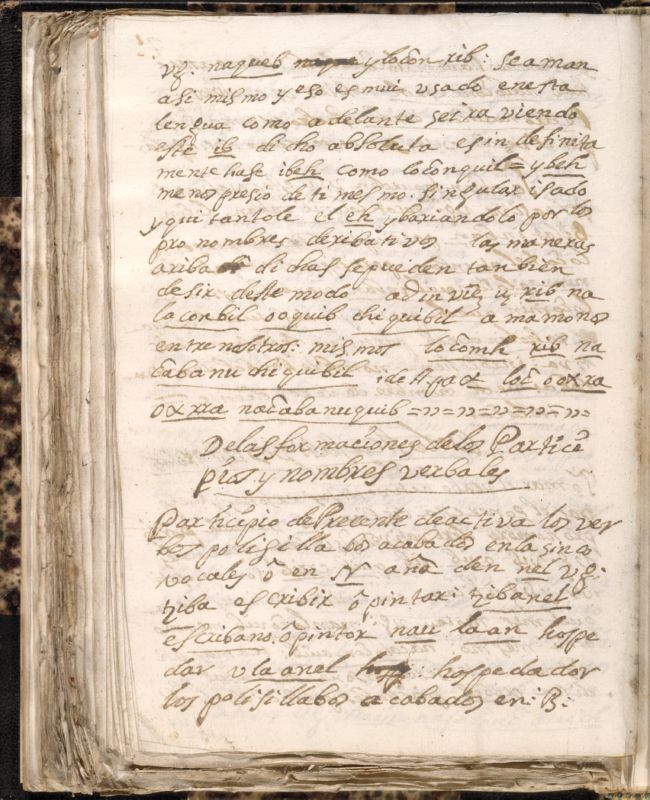 vg. naqueb y locon rib: se aman
asi mismo y eso es mui usado en esta
lengua como adelante se ira viendo
este ib dicho absoluta es indefinita
mente hase ibeh como loconquil = ybeh
menospresio de ti mesmo. singular isado
y quitantole el eh y bariandolo por los
pronombres deribativos las maneras
ariba dichas se pueden tanbien
desir deste modo ad in vice vg rib na
laconbil ooquib chiquibil amamonos
entre nosotros: mismos locomh rib na
cabanuchiquibil loc ooxra
oxrra nacabanuquib =n=n=n=n=n=
De las formaciones de los Partici
pios y nombres verbales
Participio de Precente de activa los ver
bos polisillabos acabados en la sinco
vocales o en N añaden nel vg.
tziba escribir o pintar: tzibanel
escribano, o pintor naulaan hospe
dar ulaanel : hospedador
los polisillabos acabados en: B: